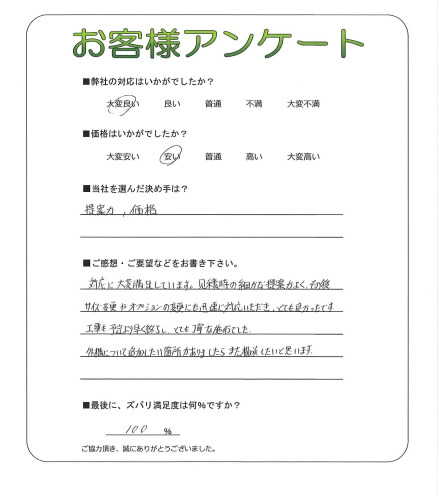 お客様アンケート
■弊社の対応はいかがでしたか？
大変良い 良い 普通 不満 大変不満
■価格はいかがでしたか？
大変安い 安い 普通 高い 大変高い
■当社を選んだ決め手は？
提案力，価格
■ご感想・ご要望などをお書き下さい。
対応に大変満足しています。見積時の細かな提案がよく、その後
サイズ変更やオプションの変更にも迅速に対応いただき、とても良かったです。
工事も予定より早く終了し、とても丁寧な施工でした。
外構について追加したい箇所がありましたらまた相談したいと思います。
■最後に、ズバリ満足度は何%ですか？
100 %
ご協力頂き、誠にありがとうございました。